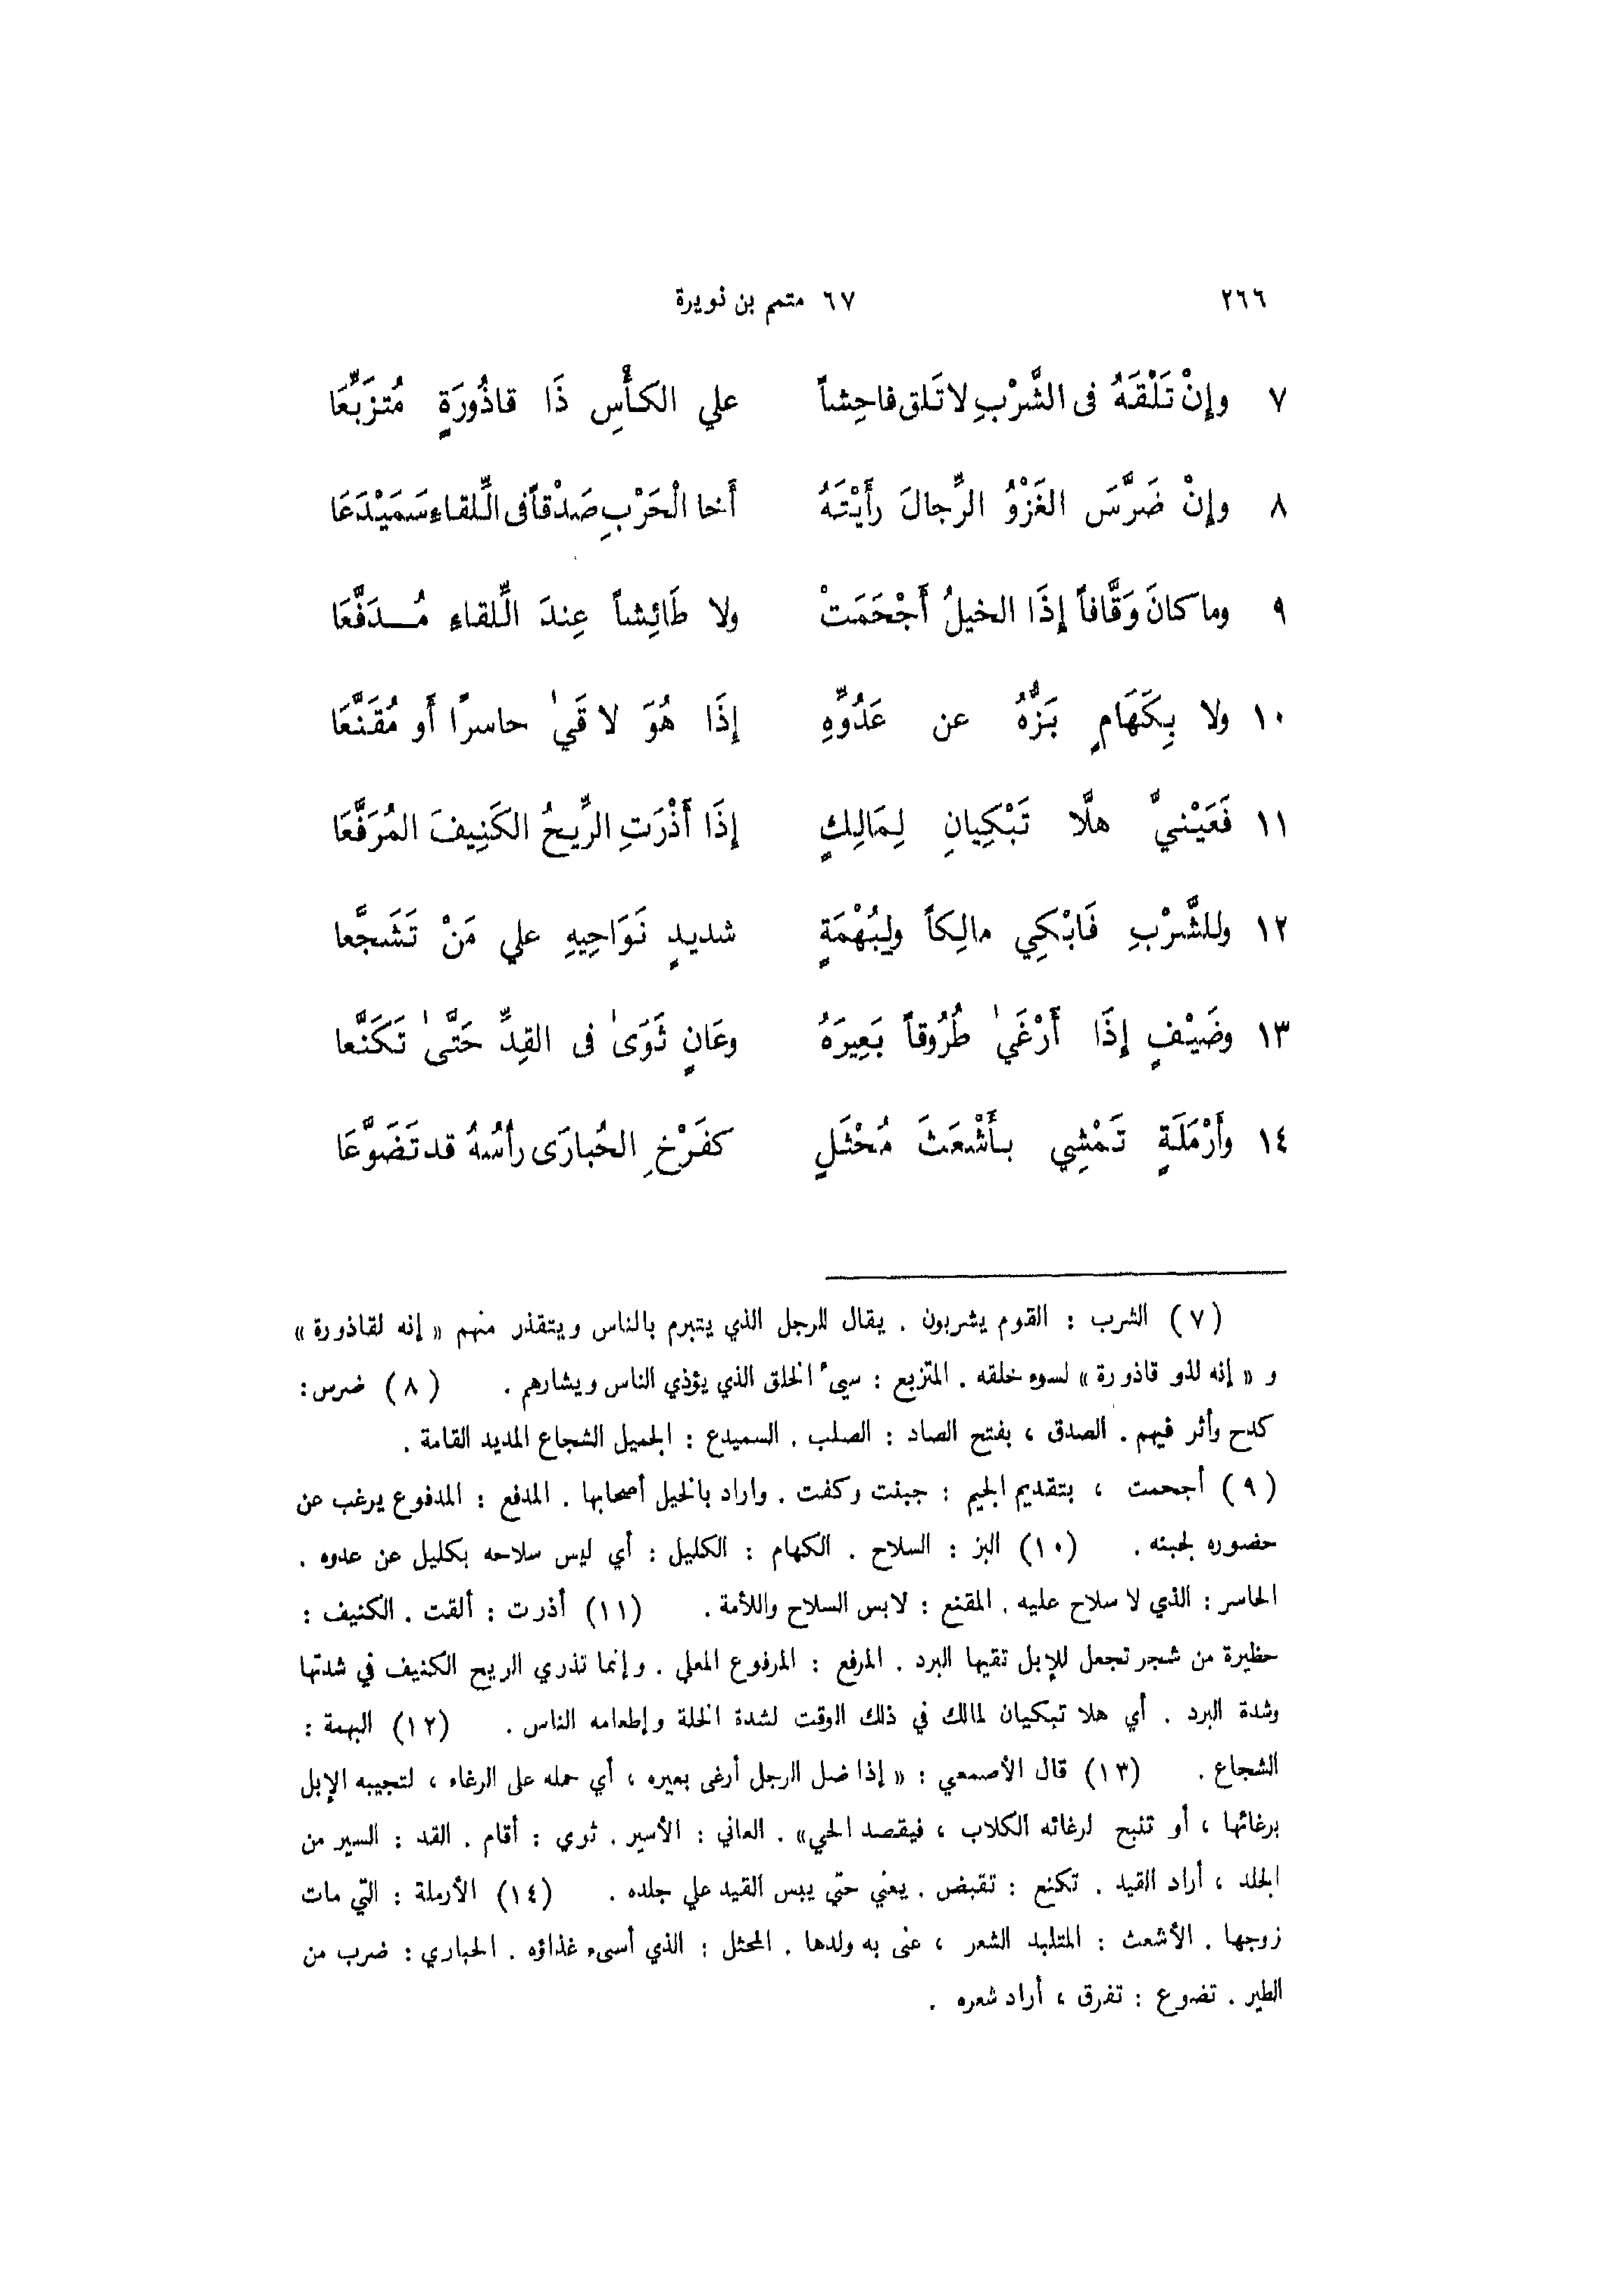 ٢٦٦ ٦٧ متمم بن نويرة
٧ وإنْ تَلْقَهُ فى الشَّرْبِ لا تَلق فاحِشاً علي الكأْسِ ذَا قاذُورَةٍ مُتزَبِّعَا
٨ وإنْ ضَرَّسَ الغَزْوُ الرِّجالَ رأَيْتَهُ أَخا الْحَرْبِ صَدْقاً فى الِّلقاءِ سَمَيْدَعَا
٩ وما كانَ وَقَّافاً إِذَا الخيلُ أَجْحَمَتْ ولا طَائِشاً عِندَ الِّلقاءِ مُـدَفَّعَا
١٠ ولا بِكَهَامٍ بَزُّهُ عن عَدُوِّهِ إِذَا هُوَ لاقَيٰ حاسرًا أَو مُقَنَّعَا
١١ فَعَيْنيَّ هلَّا تَبْكِيانِ لِمَالِكٍ إِذَا أَذْرَتِ الرِّيحُ الكَنِيفَ المُرَفَّعَا
١٢ وللشَّرْبِ فَابْكِي مالِكاً ولِبُهْمَةٍ شديدٍ نَوَاحِيهِ علي مَنْ تَشَجَّعا
١٣ وضَيْفٍ إِذَا أَرْغَيٰ طُرُوقاً بَعِيرَهُ وعَانٍ ثَوَىٰ فى القِدِّ حَتَّىٰ تَكَنَّعا
١٤ وأَرْمَلَةٍ تَمْشِي بأَشْعَثَ مُحْثَلٍ كفَرْخِ الحُبارَى رأسُهُ قد تَضَوَّعَا
(٧) الشرب : القوم يشربون . يقال للرجل الذي يتبرم بالناس ويتقذر منهم « إنه لقاذورة »
و « إنه لذو قاذورة » لسوء خلقه . المتزبع : سيئ الخلق الذي يؤذي الناس ويشارهم . (٨) ضرس :
كدح وأثر فيهم . الصدق ، بفتح الصاد : الصلب . السميدع : الجميل الشجاع المديد القامة .
(٩) أجحمت ، بتقديم الجيم : جبنت وكفت . واراد بالخيل أصحابها . المدفع : المدفوع يرغب عن
حضوره لجبنه . (١٠) البز : السلاح . الكهام : الكليل : أي ليس سلاحه بكليل عن عدوه .
الحاسر : الذي لا سلاح عليه . المقنع : لابس السلاح واللأمة . (١١) أذرت : ألقت . الكنيف :
حظيرة من شجر تجعل للإبل تقيها البرد . المرفع : المرفوع المعلى . وإنما تذري الريح الكنيف في شدتها
وشدة البرد . أي هلا تبكيان لمالك في ذلك الوقت لشدة الخلة وإطعامه الناس . (١٢) البهمة :
الشجاع . (١٣) قال الأصمعي : « إذا ضل الرجل أرغى بعيره ، أي حمله على الرغاء ، لتجيبه الإبل
برغائها ، أو تنبح لرغائه الكلاب ، فيقصد الحي» . العاني : الأسير . ثوي : أقام . القد : السير من
الجلد ، أراد القيد . تكنع : تقبض . يعني حتى يبس القيد علي جلده . (١٤) الأرملة : التي مات
زوجها . الأشعث : المتلبد الشعر ، عنى به ولدها . المحثل : الذي أسىء غذاؤه . الحباري : ضرب من
الطير . تضوع : تفرق ، أراد شعره .